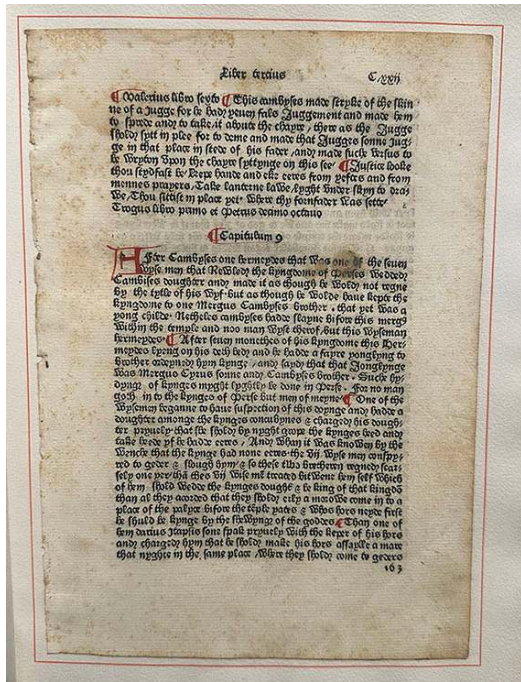 Liber tercius C/xxij
¶ Valerius libro sexto ¶ This cambyses made stryke of the skin
ne of a Jugge for he hady yeuen fals Juggement and made hem
to sprede and to take it aboute the chayre, there as the Jugge
sholdy sytt in plee for to deme and made that Jugges sonne Jug
ge in that place in stede of his fader, and made suche versus to
be wryton vpon the chayre syttynge on this see. ¶ Justice looke
thou stydfast be, kepe hande and eke eeres from yeftes and from
mennes prayers, Take lanterne lawe lyght vnder skyn to dra
we, Thou sittist in place yet. where thy fornfader was sette.
Trogus libro primo et Petrus decimo octauo
¶ Capitulum 9
After Cambyses one hermeydes that was one of the seuen
wyse men that Rewledy the kyngdome of Perses weddedy
Cambises doughter andy made it as though he woldy not regne
by the tytle of his wyf. but as though he wolde haue kepte the
kyngdome to one Mergus Cambyses brother. that yet was a
yong childe. Netheles cambyses hadde slayne bifore this mergus
within the temple and noo man wyst therof. but this wyseman
hermeydes. ¶ After seuen monethes of his kyngdome this Her
meydes lyeng on his deth bedy and he hadde a fayre yonglyng to
brother ordeyndy hym kynge, andy saydy that that Jonglynge
was Mergus Cyrus sonne andy Cambyses brother. Suche hy
dynge of kynges myght lyghtly be done in Perse. For no man
goth in to the kynges of Perse but men of meyne ¶ One of the
wysemen beganne to haue suspection of this doynge and hadde a
doughter amonge the kynges concubynes & chargedy his dough
ter pryuely. that she sholdy by nyght grope the kynges heed andy
take heede yf he hadde eeres, Andy whan it was knowen by the
wenche that the kynge had none eeres. the vij wyse men conspy
red to geder & slough hym & so these two brethern regnedy scar
sely one yer. than thes vij wise men treated bitwene hem self which
of hem shold wedde the kynges dought & be king of that kingdom
than al they acorded that they sholdy erly a morowe come in to a
place of the palyce bifore the temple yates & whos hors neyde first
he shuld be kynge by the shewyng of the goddes. ¶ Than one of
hem darius
sone spak pryuely with the keper of his hors
andy chargedy hym that he sholdy make his hors assaylle a mare
that nyghte in the same place, where they sholdy come to geders
163